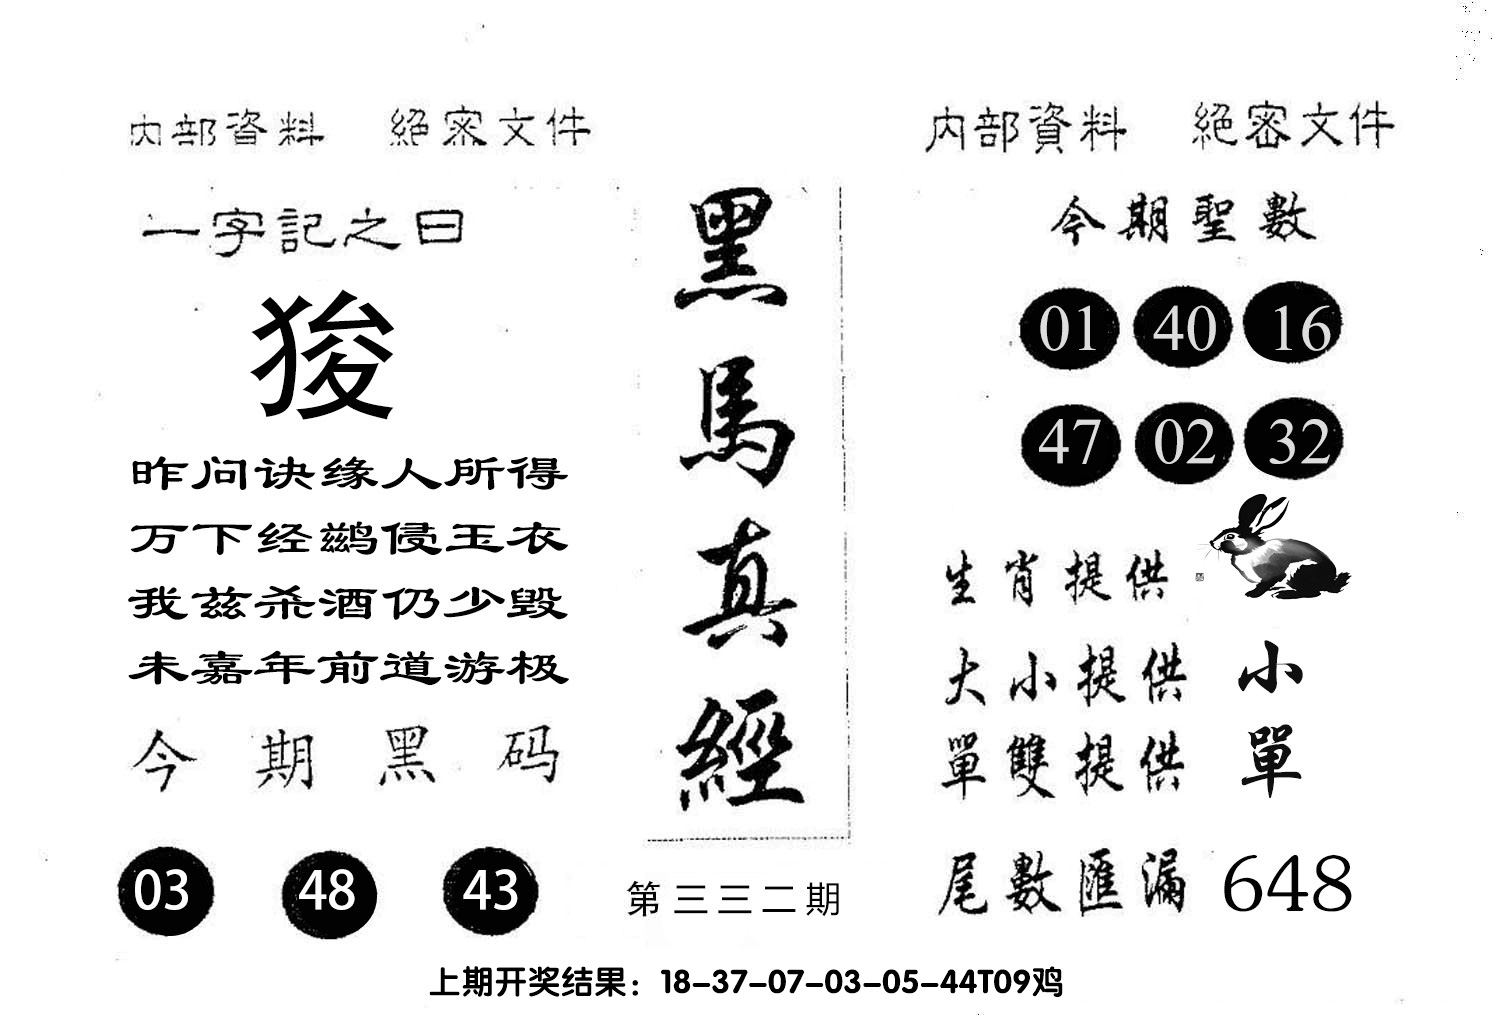 内部資料 絕密文件
一字記之曰
狻
昨问诀缘人所得
万下经鹚侵玉衣
我兹杀酒仍少毁
未嘉年前道游极
今期黑码
03 48 43
黑馬真經
第三三二期
内部資料 絕密文件
今期聖數
01 40 16
47 02 32
生肖提供
大小提供 小
單雙提供 單
尾數匯漏 648
上期开奖结果：18-37-07-03-05-44T09鸡